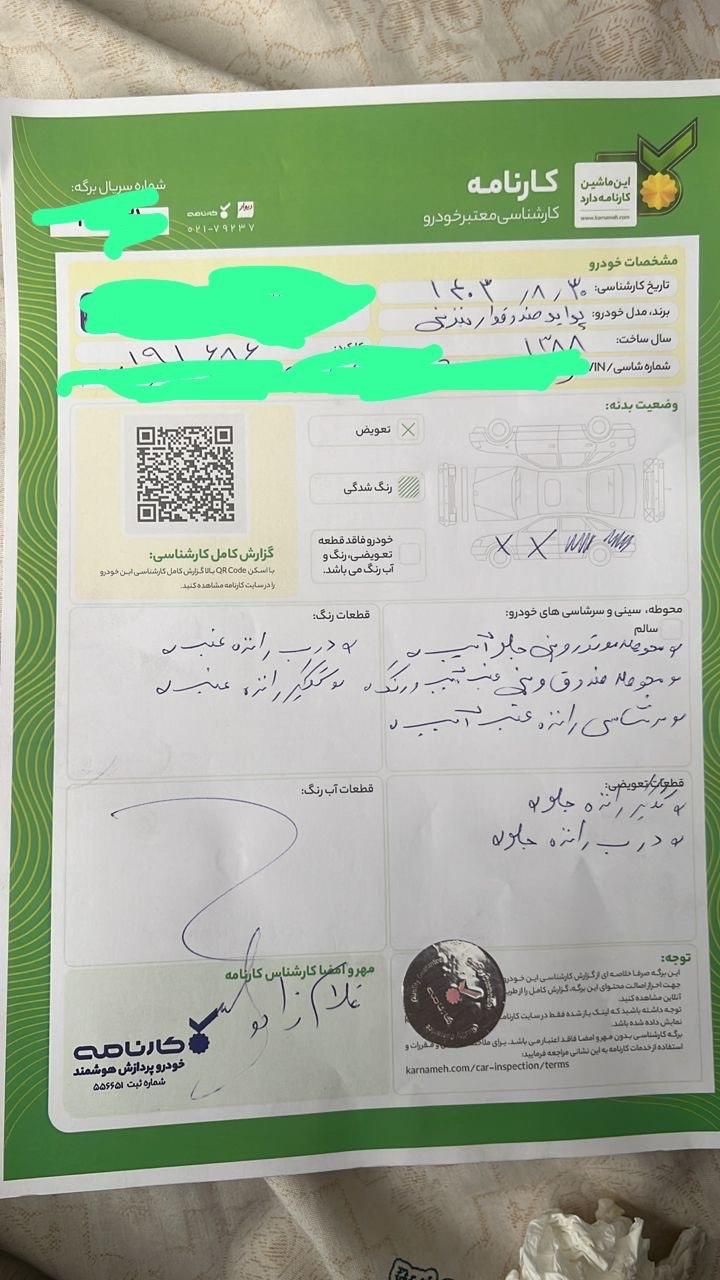 این ماشین
کارنامه دارد
www.karnameh.com
کارنامه
کارشناسی معتبر خودرو
دیوار کارنامه
۰۲۱-۷۹۲۳۷
شماره سریال برگه:
مشخصات خودرو
تاریخ کارشناسی: ۱۴۰۳/۸/۳۰
برند، مدل خودرو: پراید صندوقدار بنزینی
سال ساخت: ۱۳۸۸
۱۹۱۶۸۶
شماره شاسی/VIN
وضعیت بدنه:
تعویض
رنگ شدگی
خودرو فاقد قطعه
تعویضی، رنگ و
آب رنگ می باشد.
گزارش کامل کارشناسی:
با اسکن QR Code بالا گزارش کامل کارشناسی این خودرو
را در سایت کارنامه مشاهده کنید.
محوطه، سینی و سرشاسی های خودرو:
سالم
محوطه موتور و سینی جلو آسیب
محوطه صندوق و سینی عقب آسیب و رنگ
سرشاسی راننده عقب آسیب
قطعات رنگ:
درب راننده عقب
گلگیر راننده عقب
قطعات تعویضی:
گلگیر راننده جلو
درب راننده جلو
قطعات آب رنگ:
مهر و امضا کارشناس کارنامه
کارنامه
خودرو پردازش هوشمند
شماره ثبت ۵۵۶۶۵۱
توجه:
این برگه صرفا خلاصه ای از گزارش کارشناسی این خودرو
جهت احراز اصالت محتوای این برگه، گزارش کامل را از طریق
آنلاین مشاهده کنید.
توجه داشته باشید که لینک باز شده فقط در سایت کارنامه
نمایش داده شده باشد.
برگه کارشناسی بدون مهر و امضا فاقد اعتبار می باشد. برای و مقررات و
استفاده از خدمات کارنامه به این نشانی مراجعه فرمایید:
karnameh.com/car-inspection/terms